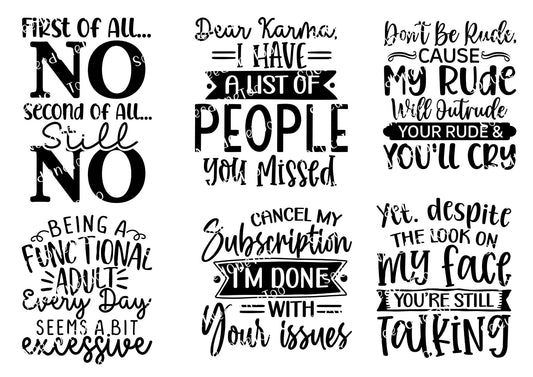 First of All...
NO
second of All...
Still
NO
Dear Karma,
I HAVE
A LIST OF
PEOPLE
you Missed
Don't Be Rude,
CAUSE
My RUDE
Will Outrude
YOUR RUDE &
YOU'LL CRY
BEING A
FUNCTIONAL
ADULT
Every Day
SEEMS A BIT
excessive
CANCEL MY
Subscription
I'M DONE
WITH
Your issues
Yet, despite
THE LOOK ON
my face
YOU'RE STILL
TalKING